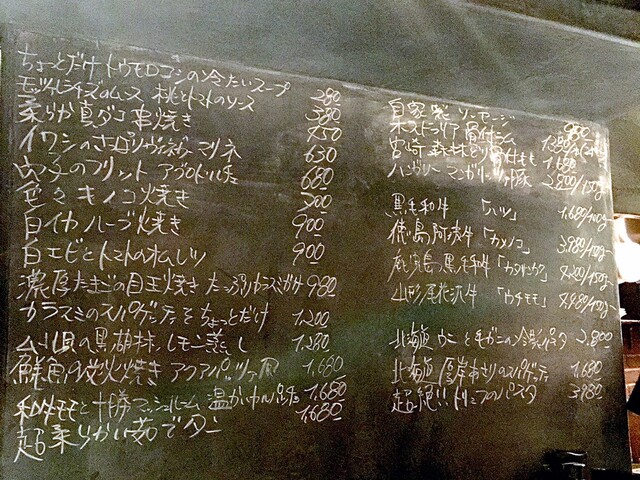 ちょっとだけ トウモロコシの冷たいスープ 280
モッツァレラチーズのムース 桃とトマトのソース 380
柔らか真ダコ 串焼き 750
イワシの マリネ 630
穴子のフリット 680
色々キノコ焼き 700
白イカ ハーブ焼き 900
白エビとトマトのオムレツ 900
濃厚たまごの目玉焼き たっぷりカラスミがけ 980
カラスミのスパゲッティを ちょっとだけ 1,200
ムール貝の黒胡椒、レモン蒸し 1,280
鮮魚の炭火焼き アクアパッツァ風 1,680
和牛モモと十勝マッシュルーム 温かいカルパッチョ 1,680
超柔らかい 1,680
自家製 ソーセージ
オーストラリア 骨付ラム
宮崎 森林どり 骨付もも 1,680
ハンガリー マンガリッツァ豚 2,800/100g
黒毛和牛 「ハツ」 1,680/100g
徳島 阿波牛 「カメノコ」 3,980/100g
鹿児島 黒毛和牛
山形 尾花沢牛 「ウチモモ」
北海道 ウニと毛ガニの冷製パスタ 2,800
北海道 厚岸あさりのスパゲッティ 1,680
超絶!! トリュフのパスタ 3,980